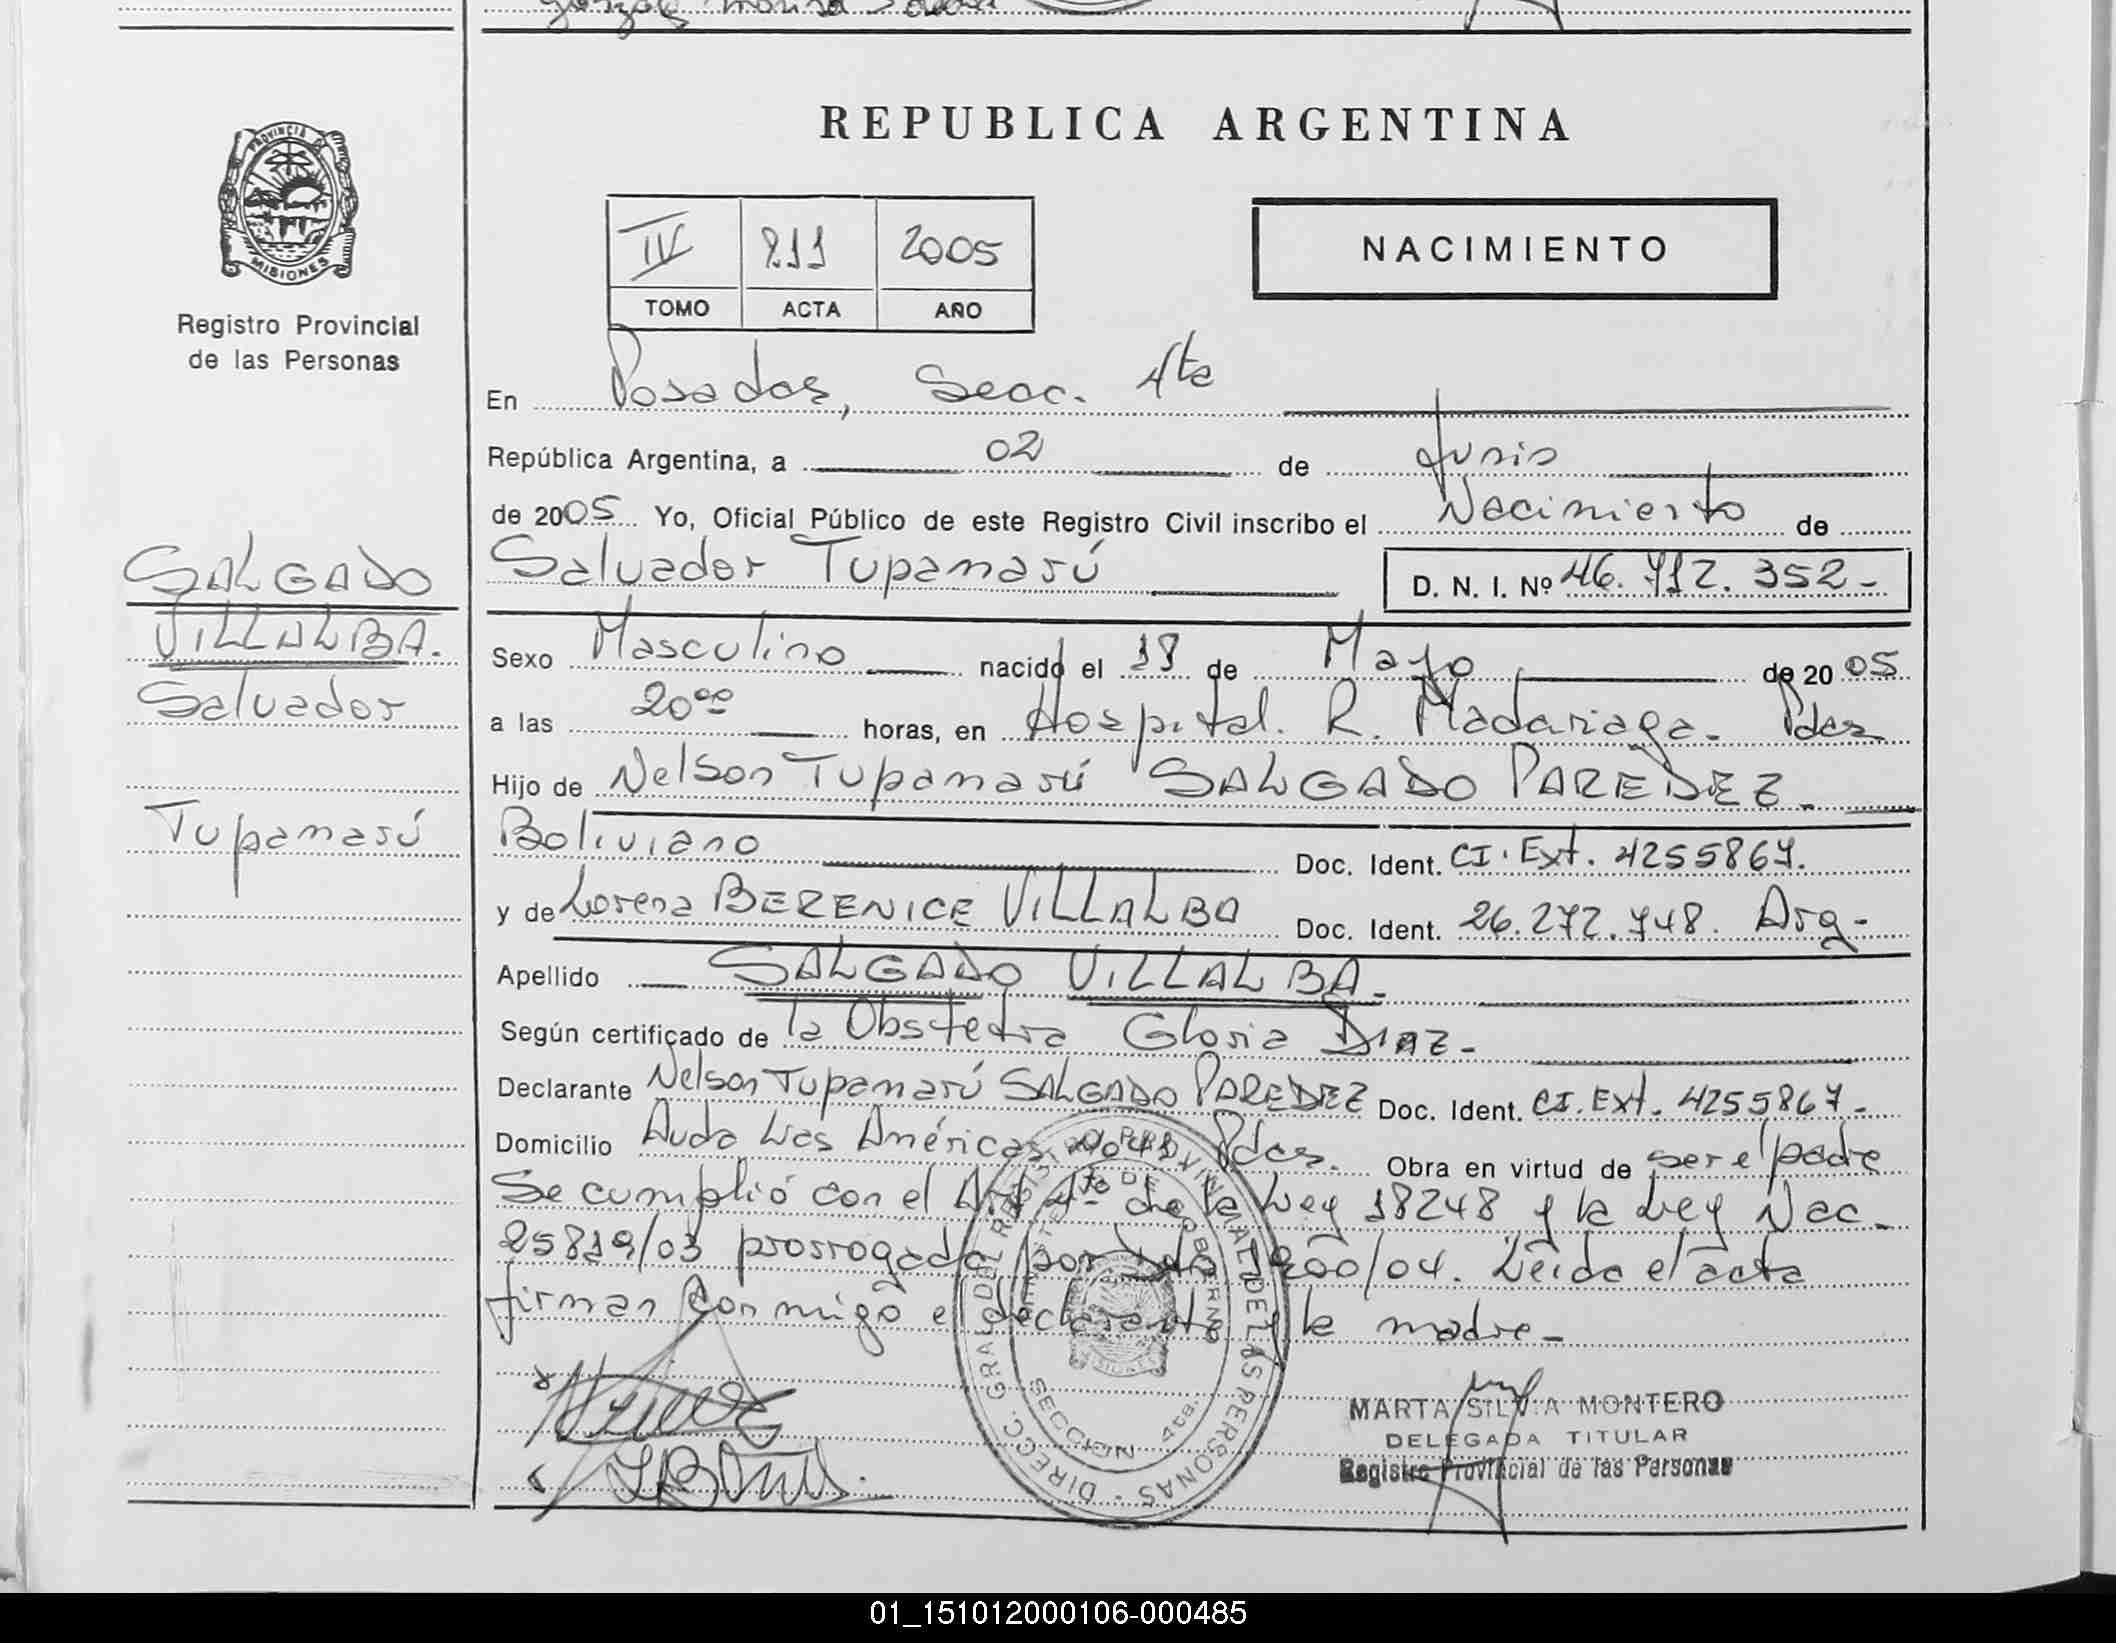 REPUBLICA ARGENTINA
PROVINCIA
MISIONES
Registro Provincial
de las Personas
IV 211 2005
TOMO ACTA AÑO
NACIMIENTO
En Posadas, Secc. 4ta
República Argentina, a 02 de Junio
de 2005 Yo, Oficial Público de este Registro Civil inscribo el Nacimiento de
Salvador Tupamarú D. N. I. Nº 46.712.352-
SALGADO
VILLALBA.
Salvador
Tupamarú
Sexo Masculino nacido el 18 de Mayo de 2005
a las 20 00 horas, en Hospital. R. Madariaga. Pdas
Hijo de Nelson Tupamarú SALGADO PAREDEZ-
Boliviano Doc. Ident. CI. Ext. 4255867.
y de Lorena BERENICE VILLALBA Doc. Ident. 26.272.748. Arg-
Apellido SALGADO VILLALBA-
Según certificado de la Obstetra Gloria DIAZ-
Declarante Nelson Tupamarú SALGADO PAREDEZ Doc. Ident. CI. Ext. 4255867-
Domicilio Avda Las Américas Pdas. Obra en virtud de ser el padre
Se cumplió con el Art 4to de la Ley 18248 y la Ley Nac.
25819/03 prorrogada por 1200/04. Leída el acta
firman conmigo el declarante y la madre-
DIRECC. GRAL. DEL REGISTRO PROVINCIAL DE LAS PERSONAS
SECCION 4ta.
MARTA SILVIA MONTERO
DELEGADA TITULAR
Registro Provincial de las Personas
01_151012000106-000485